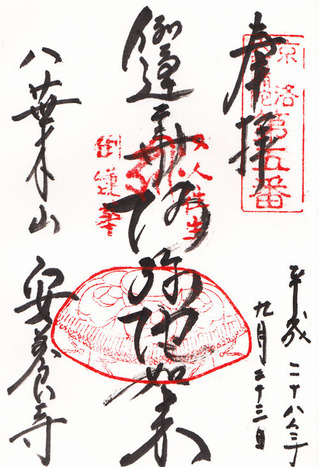 奉拝
洛
第五番
倒蓮華阿弥陀如来
女人往生
倒蓮華
平成二十八年
九月二十三日
八葉山
安養寺